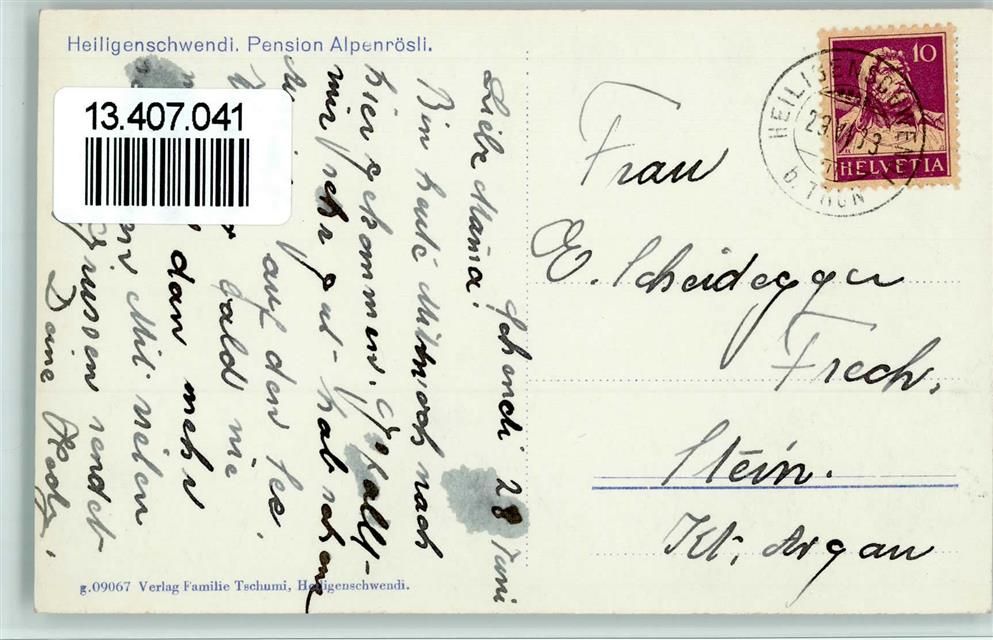 Heiligenschwendi. Pension Alpenrösli.
13.407.041
Schwendi 28 Juni
Liebe Mama!
Bin heute Mittwoch nach
hier gekommen. Gfallt
mir sehr gut - hab schon
auf den See.
bald nie
dan mehr
Mit vielen
Grüssen sendet
Deine Hedy.
g.09067 Verlag Familie Tschumi, Heiligenschwendi.
10
HELVETIA
HEILIGENSCHWENDI
29.VI.33
b. THUN
Frau
E. Scheidegger
Frech,
Stein.
Kt. Argau